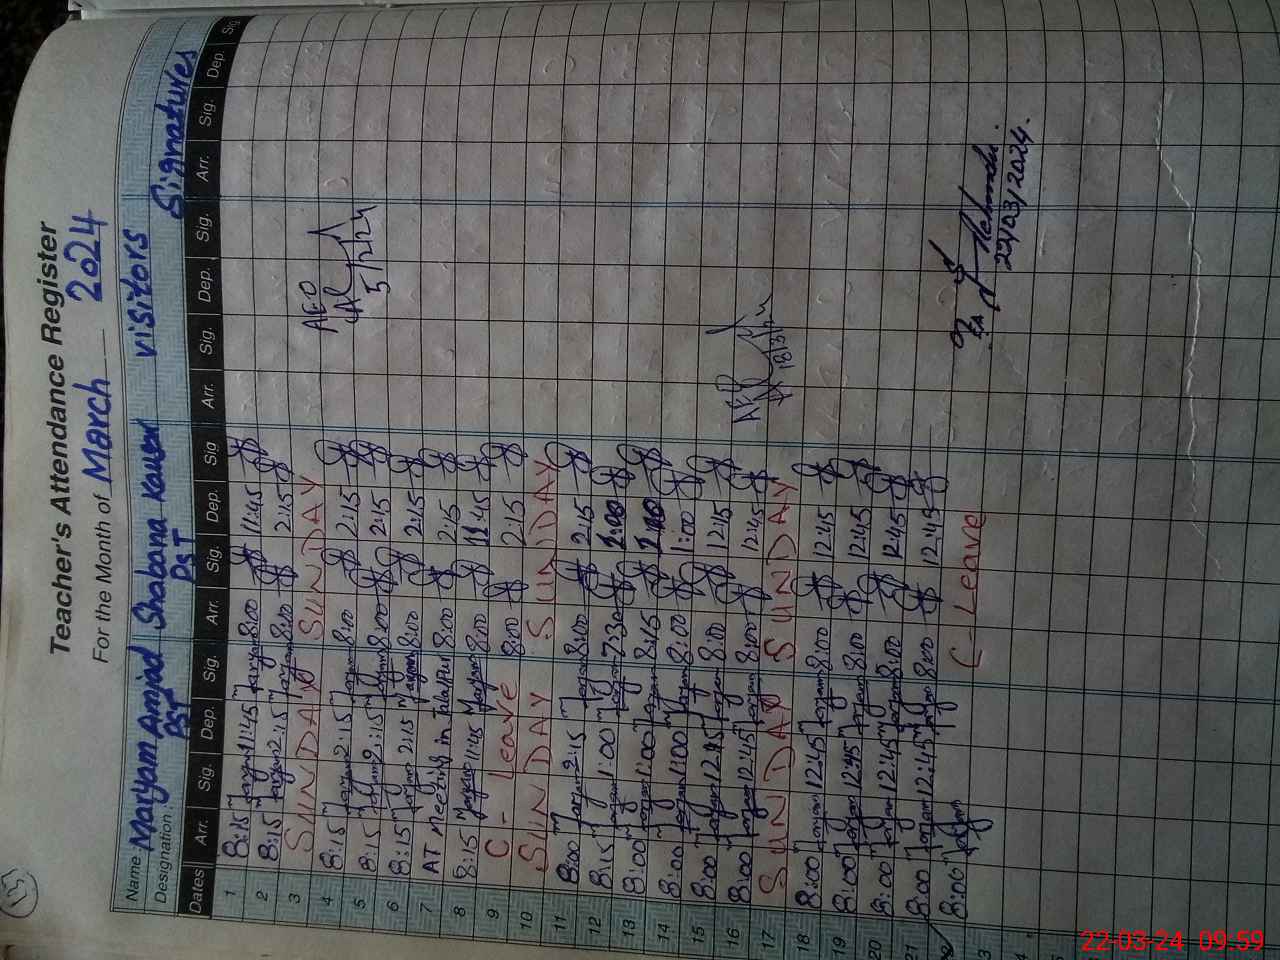 Teacher's Attendance Register
For the Month of March 2024
Name: Maryam Amjad Shabana Kausar visitors Signatures
Designation: PST PST
Dates Arr. Sig. Dep. Sig. Arr. Sig. Dep. Sig Arr. Sig. Dep. Sig. Arr. Sig. Dep. Sig
1 8:15 Maryam 11:45 Maryam 8:00 11:45
2 8:15 Maryam 2:15 Maryam 8:00 2:15
3 SUNDAY SUNDAY
4 8:15 Maryam 2:15 Maryam 8:00 2:15 AEO
5 8:15 Maryam 2:15 Maryam 8:00 2:15
6 8:15 Maryam 2:15 Maryam 8:00 2:15
7 AT Meeting in 8:00 2:15
8 8:15 Maryam 11:45 Maryam 8:00 11:45
9 C - Leave 8:00 2:15
10 SUNDAY SUNDAY
11 8:00 Maryam 2:15 Maryam 8:00 2:15
12 8:15 Maryam 1:00 Maryam 7:30 1:00
13 8:00 Maryam 1:00 Maryam 8:15 1:00
14 8:00 Maryam 1:00 Maryam 8:00 1:00
15 8:00 Maryam 12:45 Maryam 8:00 12:45
16 8:00 Maryam 12:45 Maryam 8:00 12:45
17 SUNDAY SUNDAY
18 8:00 Maryam 12:45 Maryam 8:00 12:45
19 8:00 Maryam 12:45 Maryam 8:00 12:45
20 8:00 Maryam 12:45 Maryam 8:00 12:45
21 8:00 Maryam 12:45 Maryam 8:00 12:45
8:00 Maryam C - Leave
22/03/2024.
22-03-24 09:59